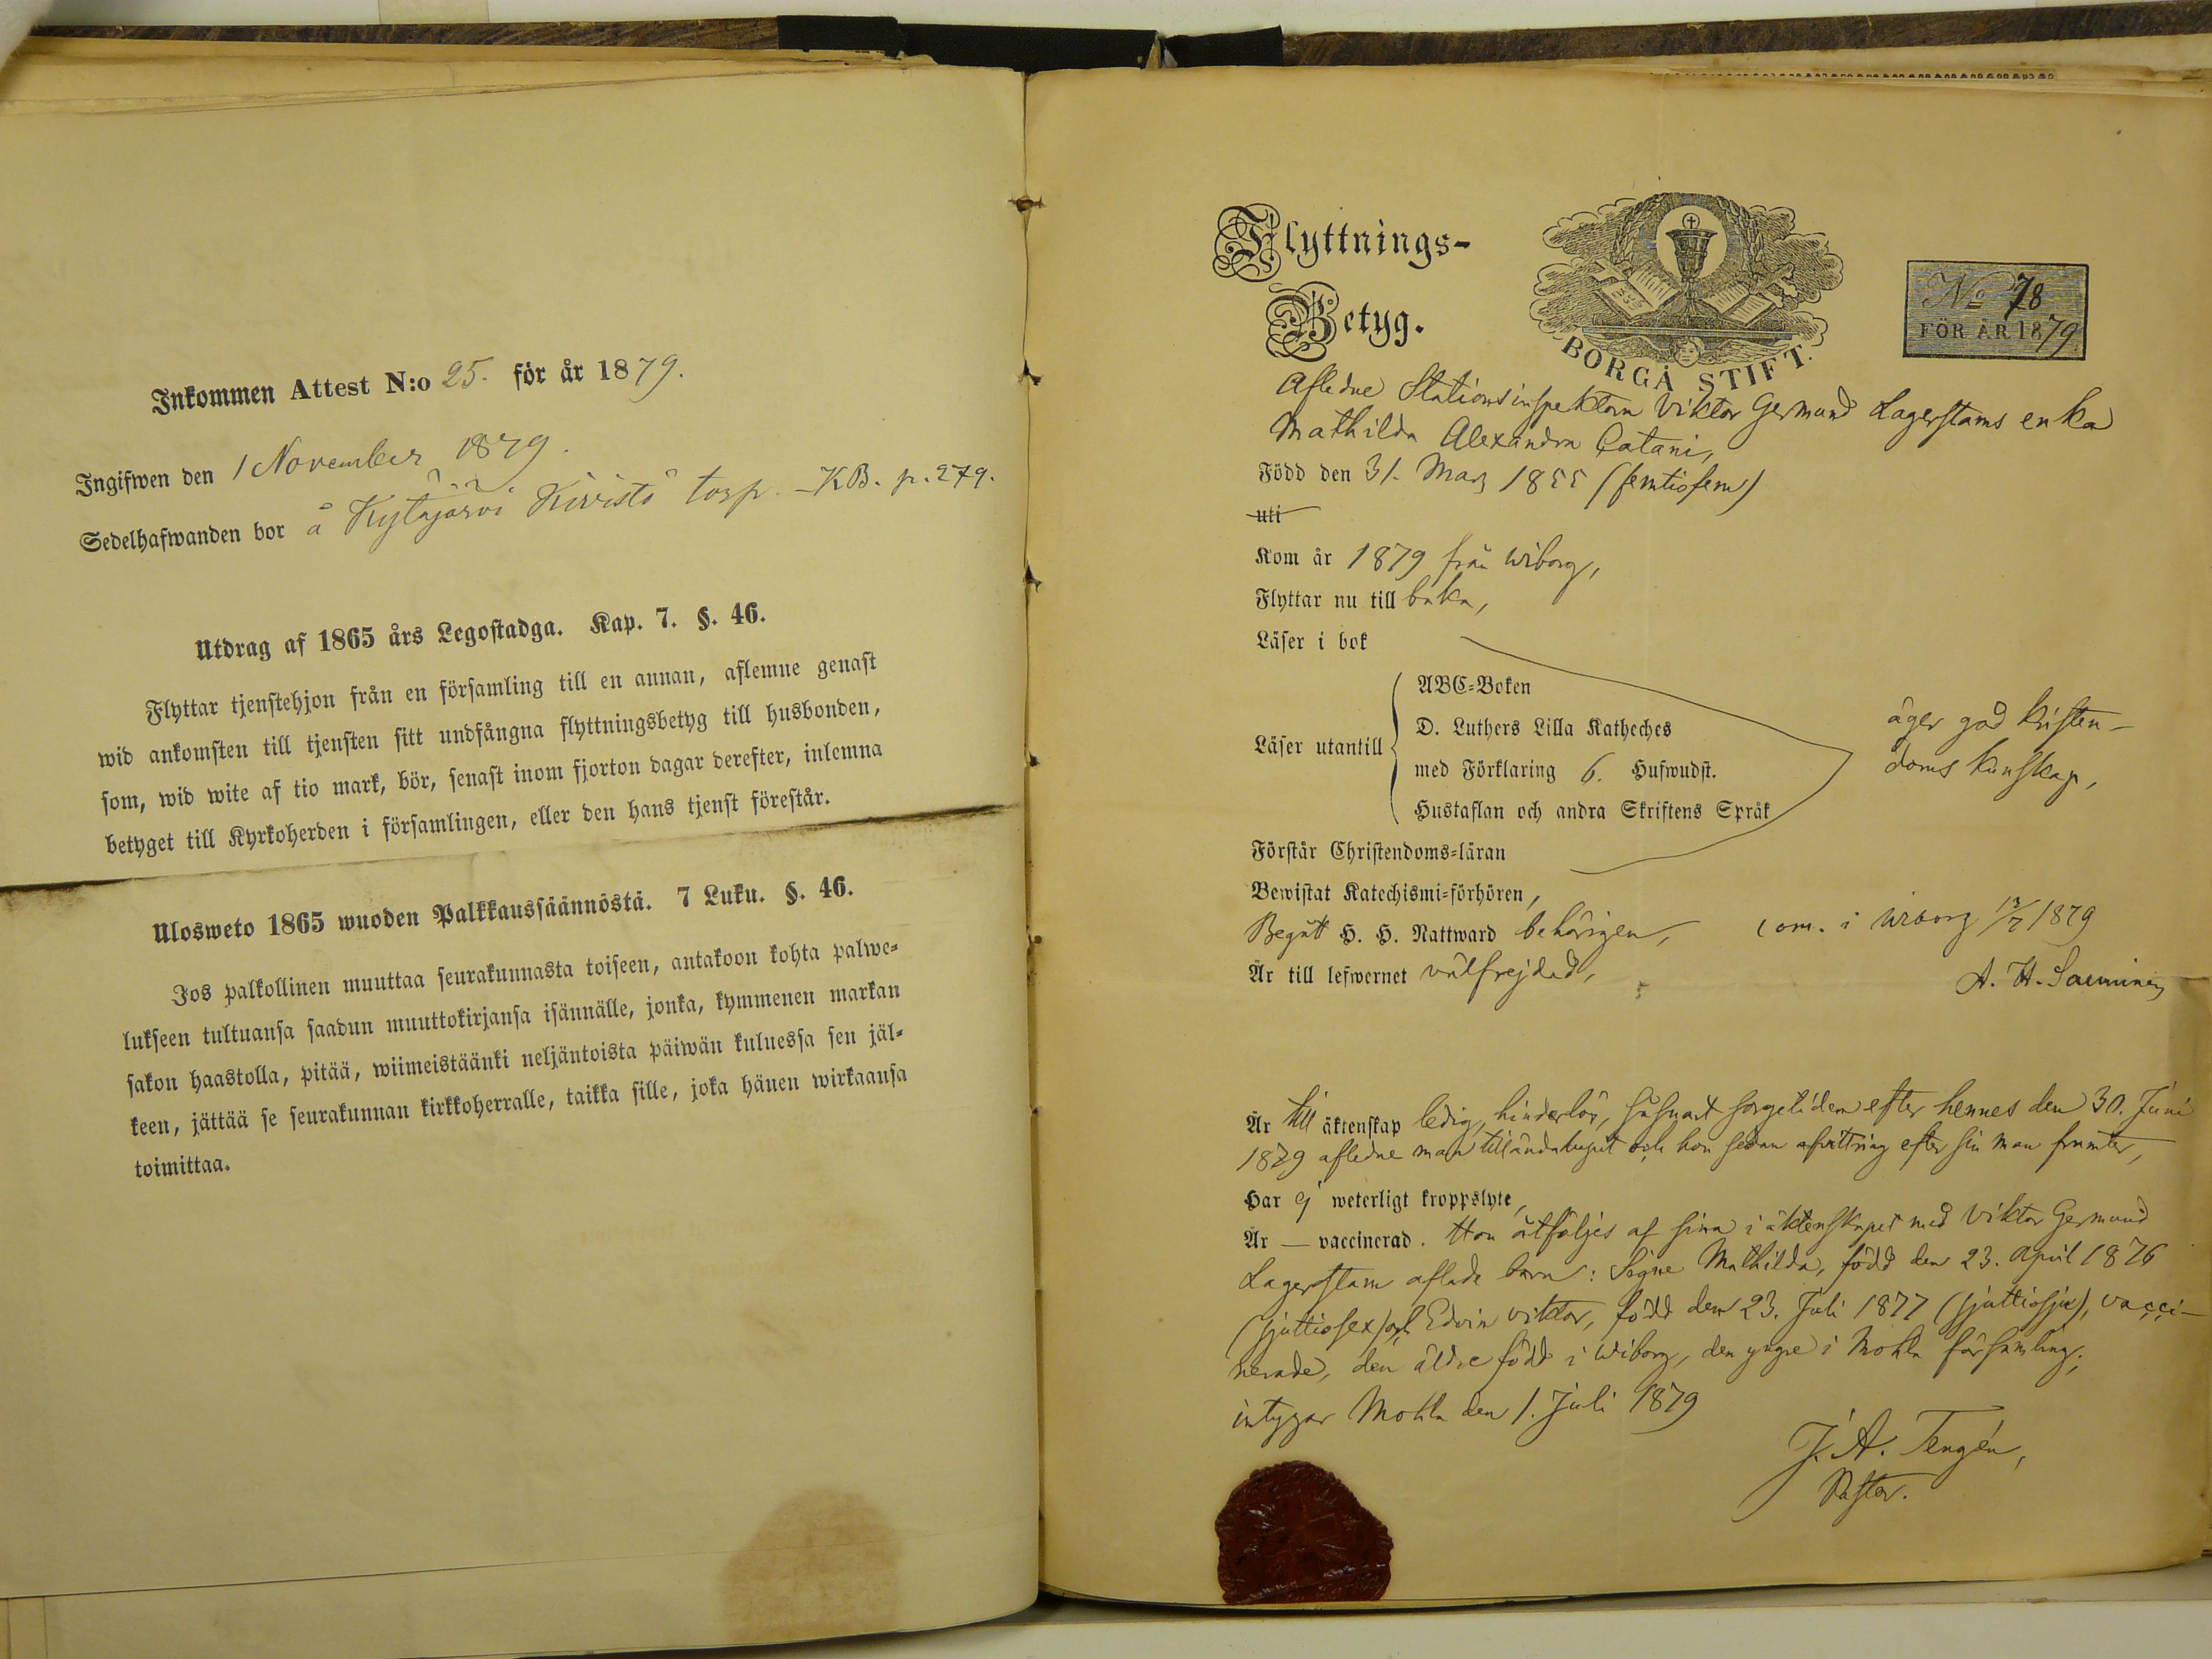 Inkommen Attest N:o 25. för år 1879.
Ingifwen den 1 November 1879.
Sedelhafwanden bor å Kytäjärvi Kivistö torp. - KB. p. 279.
Utdrag af 1865 års Legostadga. Kap. 7. §. 46.
Flyttar tjenstehjon från en församling till en annan, aflemne genast
wid ankomsten till tjensten sitt undfångna flyttningsbetyg till husbonden,
som, wid wite af tio mark, bör, senast inom fjorton dagar derefter, inlemna
betyget till Kyrkoherden i församlingen, eller den hans tjenst förestår.
Ulosweto 1865 wuoden Palkkaussäännöstä. 7 Luku. §. 46.
Jos palkollinen muuttaa seurakunnasta toiseen, antakoon kohta palwe-
lukseen tultuansa saadun muuttokirjansa isännälle, jonka, kymmenen markan
sakon haastolla, pitää, wiimeistäänki neljäntoista päiwän kuluessa sen jäl-
keen, jättää se seurakunnan kirkkoherralle, taikka sille, joka hänen wirkaansa
toimittaa.
Flyttnings-
Betyg.
BORGÅ STIFT.
No 78
FÖR ÅR 1879
Afledne Stationsinspektorn Viktor Germund Lagerstams enka
Mathilda Alexandra Catani,
Född den 31. Mars 1855 (femtiofem)
uti
Kom år 1879 från Wiborg,
Flyttar nu till baka,
Läser i bok
Läser utantill
ABC-Boken
D. Luthers Lilla Katheches
med Förklaring 6. Hufwudst.
Hustaflan och andra Skriftens Språk
äger god kristen-
doms kunskap,
Förstår Christendoms-läran
Bewistat Katechismi-förhören,
Begått H. H. Nattward behörigen, com. i Wiborg 13/7 1879
Är till lefwernet välfrejdad,
A. H. Saeminen
Är till äktenskap ledig, hinderlös, så snart sorgetiden efter hennes den 30. Juni
1879 afledne man tilländalupit och hon sedan afvittring efter sin man framter,
Har ej weterligt kroppslyte,
Är — vaccinerad. Hon åtföljes af sina i äktenskapet med Viktor Germund
Lagerstam aflade barn: Signe Mathilda, född den 23. April 1876
(sjuttiosex) och Edvin Viktor, född den 23. Juli 1877 (sjuttiosju), vacci-
nerade, den äldre född i Wiborg, den yngre i Mohla församling;
intygar Mohla den 1. Juli 1879
J. A. Tengén,
Pastor.